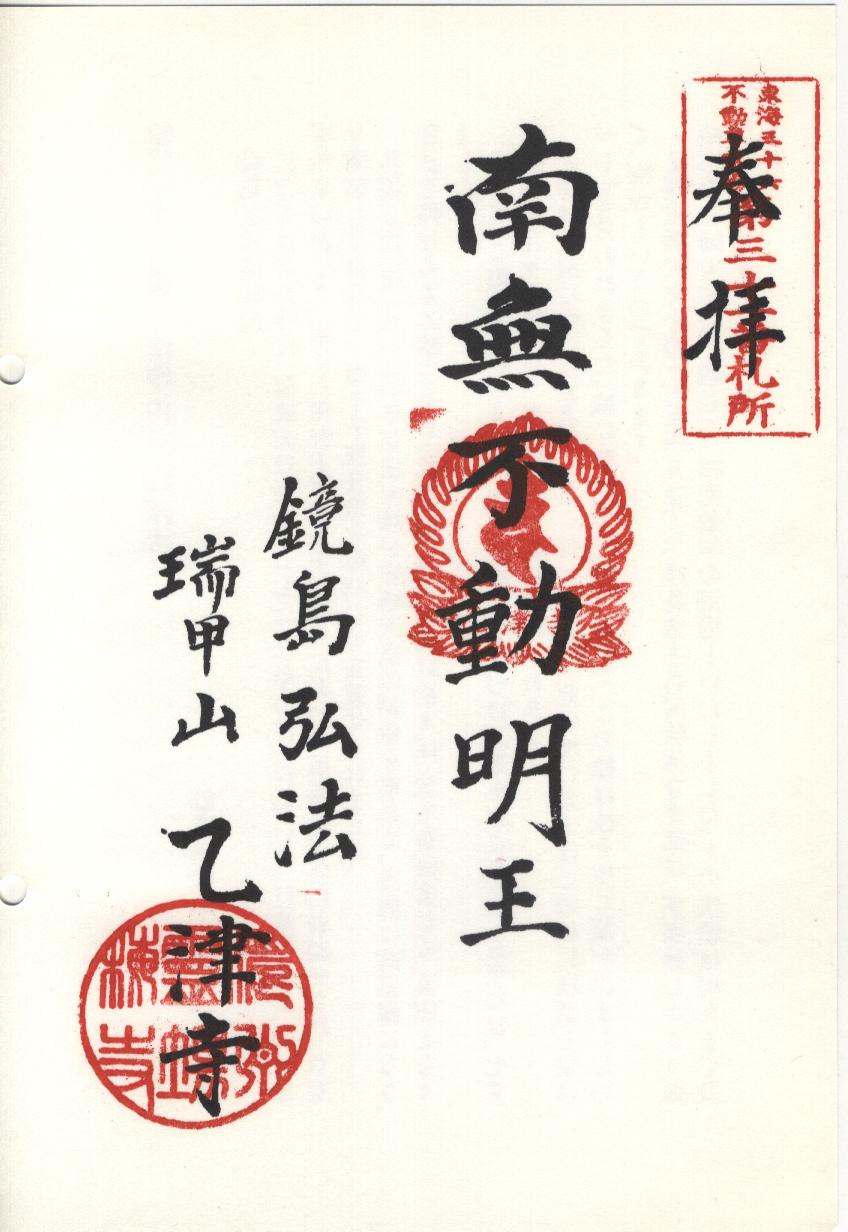 東海三十六
不動尊
第三十三番札所
奉拝
南無不動明王
鏡島弘法
瑞甲山 乙津寺